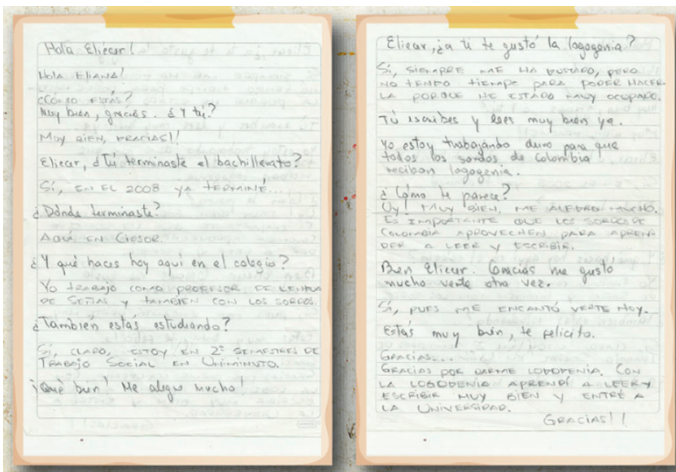 Hola Eliecer!
HOLA ELIANA!
¿CÓMO ESTÁS?
Muy bien, gracias. ¿Y tú?
MUY BIEN, GRACIAS!!
Eliecer, ¿Tú terminaste el bachillerato?
SÍ, EN EL 2008 YA TERMINÉ
¿Dónde terminaste?
AQUÍ EN CIESOR.
¿Y qué haces hoy aquí en el colegio?
YO TRABAJO COMO PROFESOR DE LENGUA
DE SEÑAS Y TAMBIEN CON LOS SORDOS.
¿También estás estudiando?
SÍ, CLARO, ESTOY EN 2º SEMESTRES DE
TRABAJO SOCIAL EN UNIMINUTO.
¡Qué bien! Me alegro mucho!
Eliecer, ¿a ti te gustó la logogenia?
SÍ, SIEMPRE ME HA GUSTADO, PERO
NO TENGO TIEMPO PARA PODER HACER
LA PORQUE HE ESTADO MUY OCUPADO.
Tú escribes y lees muy bien ya.
Yo estoy trabajando duro para que
todos los sordos de Colombia
reciban logogenia.
¿Cómo te parece?
UY! MUY BIEN, ME ALEGRO MUCHO.
ES IMPORTANTE QUE LOS SORDOS DE
COLOMBIA APROVECHEN PARA APREN
DER A LEER Y ESCRIBIR.
Bien Eliecer. Gracias me gustó
mucho verte otra vez.
SÍ, PUES ME ENCANTÓ VERTE HOY.
Estás muy bien, te felicito.
GRACIAS...
GRACIAS POR DARME LOGOGENIA. CON
LA LOGOGENIA APRENDÍ A LEER Y
ESCRIBIR MUY BIEN Y ENTRÉ A
LA UNIVERSIDAD.
GRACIAS!!